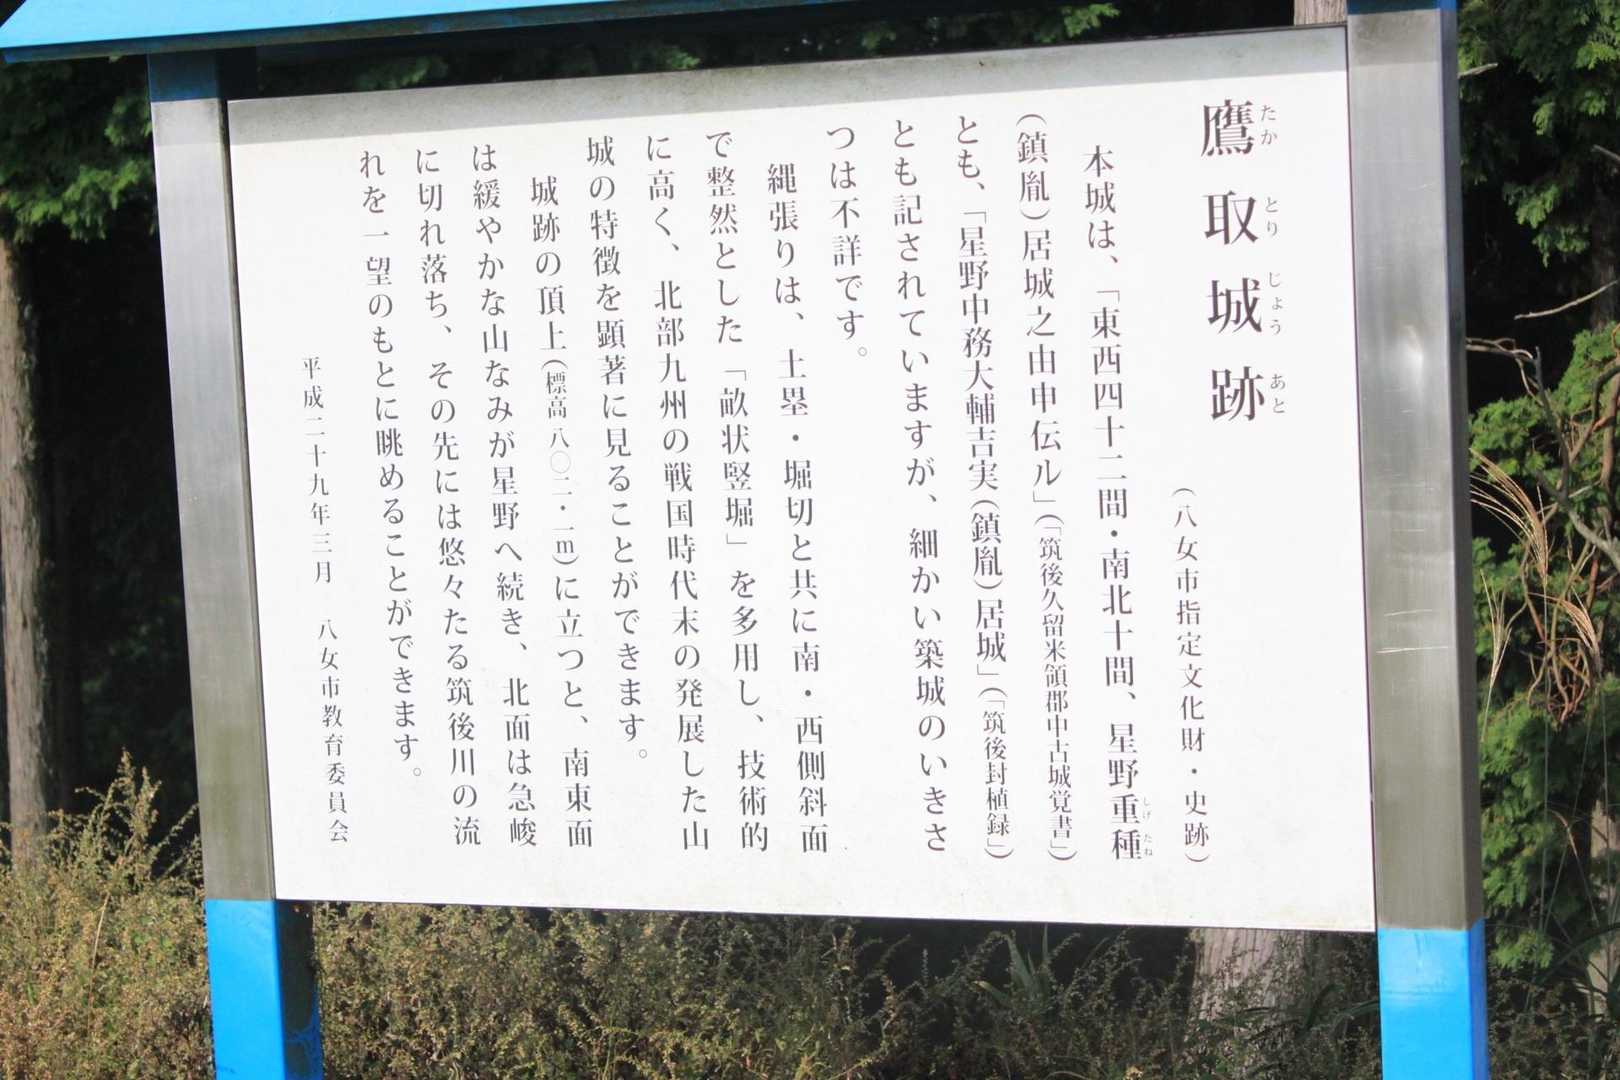 鷹取城跡
たか とり じょう あと
（八女市指定文化財・史跡）
本城は、「東西四十二間・南北十間、星野重種
しげ たね
（鎮胤）居城之由申伝ル」（「筑後久留米領郡中古城覚書」）
とも、「星野中務大輔吉実（鎮胤）居城」（「筑後封植録」）
とも記されていますが、細かい築城のいきさ
つは不詳です。
縄張りは、土塁・堀切と共に南・西側斜面
で整然とした「畝状竪堀」を多用し、技術的
に高く、北部九州の戦国時代末の発展した山
城の特徴を顕著に見ることができます。
城跡の頂上（標高八〇二・一m）に立つと、南東面
は緩やかな山なみが星野へ続き、北面は急峻
に切れ落ち、その先には悠々たる筑後川の流
れを一望のもとに眺めることができます。
平成二十九年三月 八女市教育委員会